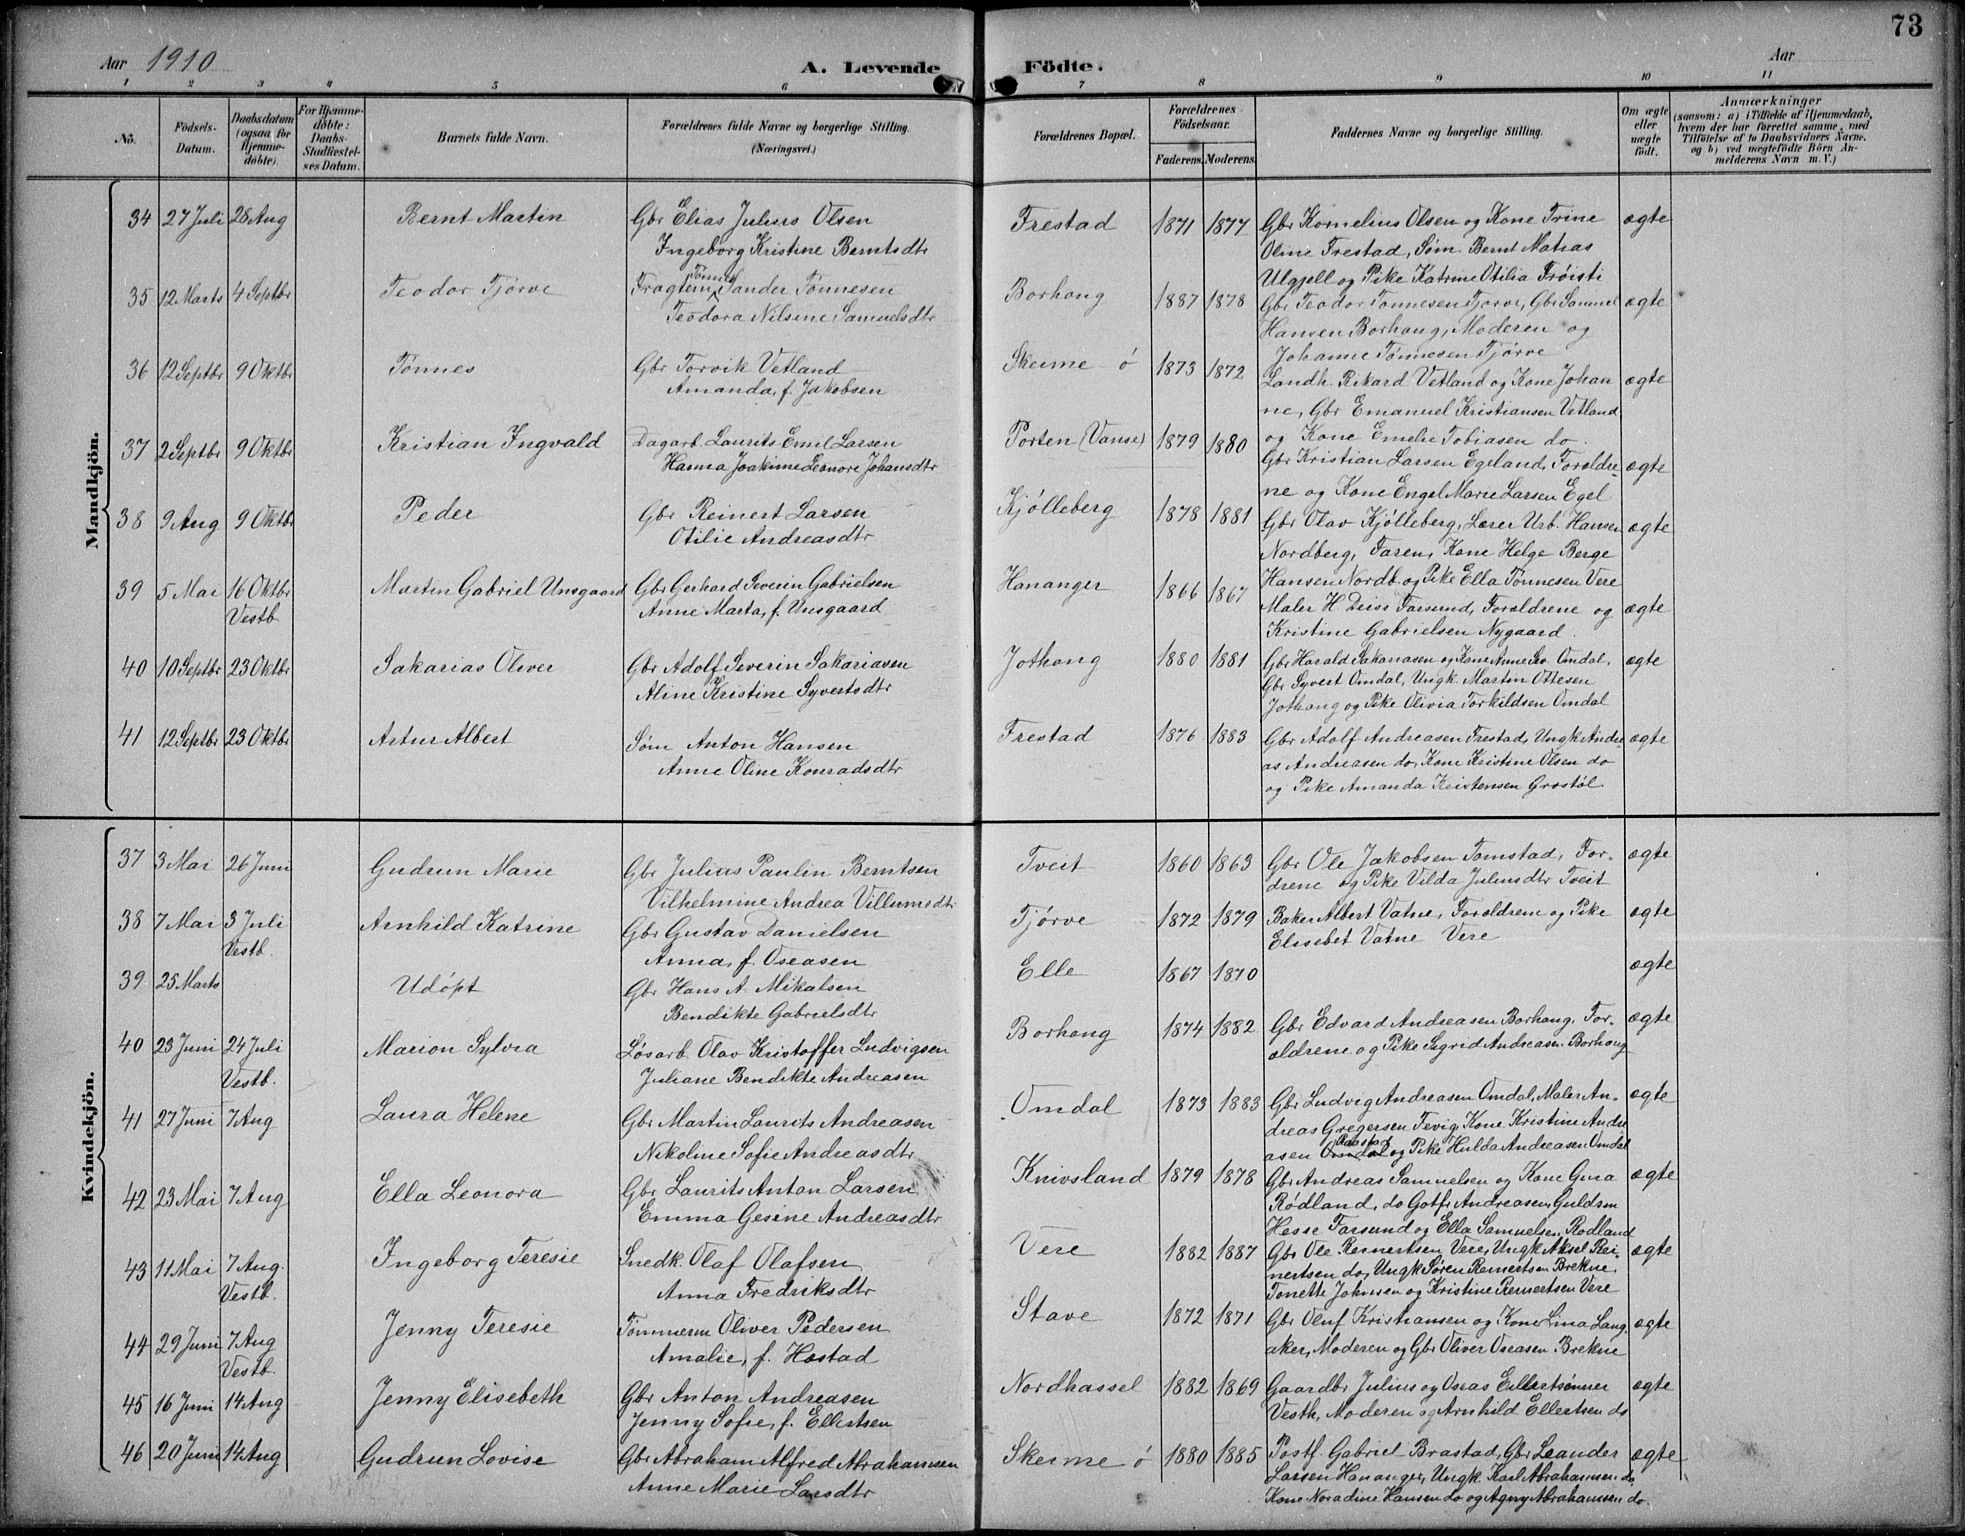 73
Aar 1910
A. Levende Födte.
Aar
1 2 3 4 5 6 7 8 9 10 11
No.
Födsels-Datum.
Daabsdatum (ogsaa for Hjemmedöbte).
For Hjemmedöbte: Daabs-Stadfæstelses Datum.
Barnets fulde Navn.
Forældrenes fulde Navne og borgerlige Stilling. (Næringsvei.)
Forældrenes Bopæl.
Forældrenes Födselsaar.
Faderens. Moderens.
Faddernes Navne og borgerlige Stilling.
Om ægte eller uægte födt.
Anmærkninger
(saasom: a) i Tilfælde af Hjemmedaab, hvem der har forrettet samme, med Tilföielse af to Daabsvidners Navne. og b) ved uægtefödte Börn Anmelderens Navn m. V.)
Mandkjön.
34 27 Juli 28 Aug Bernt Martin Gbr Elias Julius Olsen Frestad 1871 1877 Gbr Kornelius Olsen og Kone Trine ægte
Ingeborg Kristine Berntsdtr Oline Frestad, Søm. Bernt Matias
Ulgjell og Pike Katrine Otilia Frøisti
35 12 Marts 4 Septbr Teodor Tjørve Fragtem Tønnes Sander Tønnesen Borhaug 1887 1878 Gbr Teodor Tønnesen Tjørve, Gbr Samuel ægte
Teodora Nilsine Samuelsdtr Hansen Borhaug, Moderen og
Johanne Tønnesen Tjørve
36 12 Septbr 9 Oktbr Tønnes Gbr Torvik Vetland Skeime ø 1873 1872 Landh. Rikard Vetland og Kone Johan ægte
Amanda, f. Jakobsen ne, Gbr Emanuel Kristiansen Vetland
og Kone Emelie Tobiasen do.
37 2 Septbr 9 Oktbr Kristian Ingvald Dagarb. Laurits Emil Larsen Porten (Vanse) 1879 1880 Gbr Kristian Larsen Egeland, Foreldre ægte
Hanna Joakime Leonore Johansdtr ne og Kone Engel Marie Larsen Egel
38 9 Aug 9 Oktbr Peder Gbr Reinert Larsen Kjølleberg 1878 1881 Gbr Olav Kjølleberg, Lærer Urb. Hansen ægte
Otilie Andreasdtr Nordberg, Faren, Kone Helge Berge
Hansen Nordb. og Pike Ella Tønnesen Vere
39 5 Mai 16 Oktbr Vestb Martin Gabriel Unsgaard Gbr Gerhard Severin Gabrielsen Hananger 1866 1867 Maler H Deiss Farsund, Foreldrene og ægte
Anne Marta, f. Unsgaard Kristine Gabrielsen Nygaard.
40 10 Septbr 23 Oktbr Sakarias Oliver Gbr Adolf Severin Sakariasen Jøthaug 1880 1881 Gbr Harald Sakariasen og Kone Anne Sev. Omdal, ægte
Aline Kristine Syvertsdtr Gbr Syvert Omdal, Ungk. Martin Ottesen
Jothaug og Pike Olivia Torkildsen Omdal
41 12 Septbr 23 Oktbr Artur Albert Søm Anton Hansen Frestad 1876 1883 Gbr Adolf Andreasen Frestad, Ungk Andre ægte
Anne Oline Konradsdtr as Andreasen do, Kone Kristine Olsen do
og Pike Amanda Kristensen Grøstøl
Kvindekjön.
37 3 Mai 26 Juni Gudrun Marie Gbr Julius Paulin Berntsen Tveit 1860 1863 Gbr Ole Jakobsen Tomstad, For- ægte
Vilhelmine Andrea Villumsdtr drene og Pike Vilda Juliusdtr Tveit
38 7 Mai 3 Juli Vestb. Arnhild Katrine Gbr Gustav Danielsen Tjørve 1872 1879 Baker Albert Vatne, Foreldrene og Pike ægte
Anna, f. Oseasen Elisebet Vatne Vere
39 25 Marts Udøpt Gbr Hans A. Mikalsen Elle 1867 1870 ægte
Bendikte Gabrielsdtr
40 23 Juni 24 Juli Vestb. Marion Sylvia Løsarb. Olav Kristoffer Ludvigsen Borhaug 1874 1882 Gbr Edvard Andreasen Borhaug, For- ægte
Juliane Bendikte Andreasen oldrene og Pike Sigrid Andreasen Borhaug
41 27 Juni 7 Aug Laura Helene Gbr Martin Laurits Andreasen Omdal 1873 1883 Gbr Ludvig Andreasen Omdal, Maler An- ægte
Nikoline Sofie Andreasdtr dreas Gregersen Tevig, Kone Kristine Andre
asen Omdal og Pike Hulda Andreasen Omdal
42 23 Mai 7 Aug Ella Leonora Gbr Laurits Anton Larsen Knivsland 1879 1878 Gbr Andreas Samuelsen og Kone Gina ægte
Emma Gesine Andreasdtr Rødland, do Gotfr Andreasen, Guldsm
Hesse Farsund og Ella Samuelsen Rødland
43 11 Mai 7 Aug. Vestb. Ingeborg Teresie Snedk. Olaf Olafsen Vere 1882 1887 Gbr Ole Reinertsen Vere, Ungk Aksel Rei- ægte
Anna Fredriksdtr nertsen do, Ungk Søren Reinertsen Brekne,
Tonette Johnsen og Kristine Reinertsen Vere
44 29 Juni 7 Aug Vestb. Jenny Teresie Tømmerm Oliver Pedersen Stave 1872 1871 Gbr Oluf Kristiansen og Kone Lina Lang- ægte
Amalie, f. Høstad aker, Moderen og Gbr Oliver Oseasen Brekne
45 16 Juni 14 Aug Jenny Elisebeth Gbr Anton Andreasen Nordhassel 1882 1869 Gaardbr Julius og Oseas Ellertsønner ægte
Jenny Sofie, f. Ellertsen Vesth, Moderen og Arnhild Ellertsen do
46 20 Juni 14 Aug Gudrun Lovise Gbr Abraham Alfred Abrahamsen Skeime ø 1880 1885 Postf. Gabriel Brastad, Gbr Leander ægte
Anne Marie Larsdtr Larsen Hananger, Ungk. Karl Abrahamsen do
Kone Noradine Hansen do og Agny Abrahamsen do